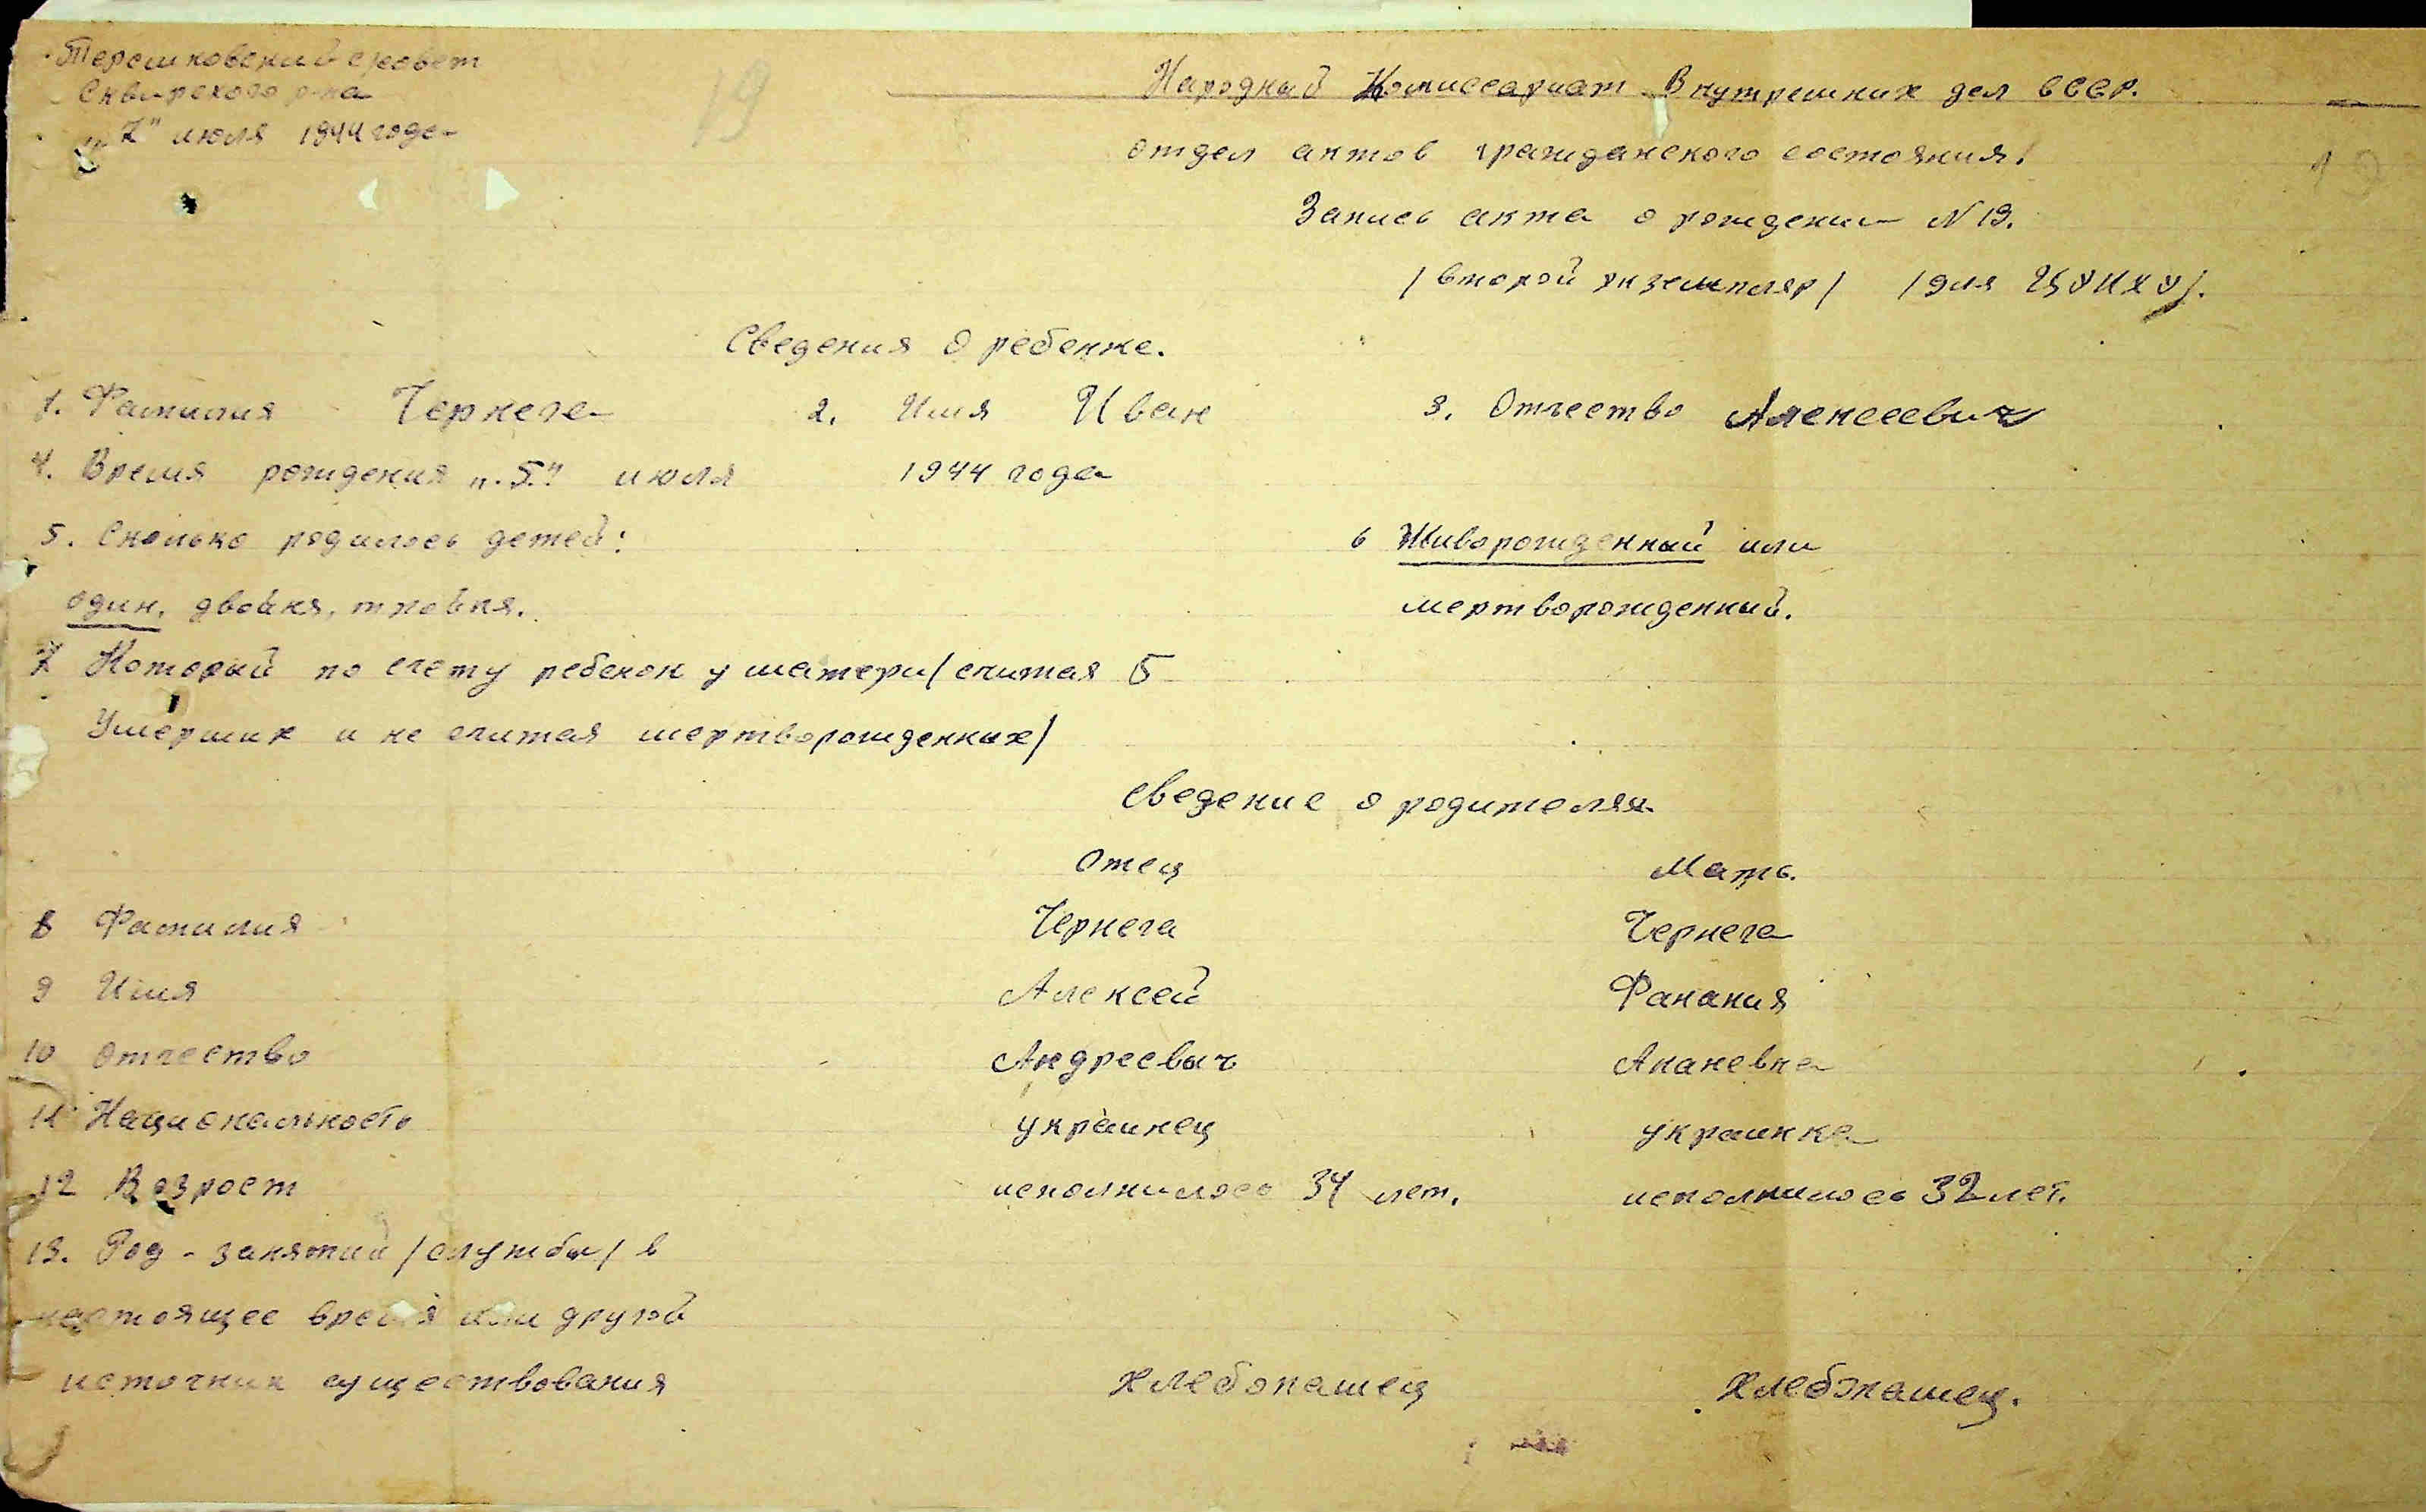 Терешковский с/совет
Сквирского р-на
"7" июля 1944 года
19
Народный Комиссариат Внутренних дел СССР.
отдел актов гражданского состояния.
19
Запись акта о рождении N 19.
/второй экземпляр/ /для ЦОИХО/.
Сведения о ребенке.
1. Фамилия Чернега 2. Имя Иван 3. Отчество Алексеевич
4. Время рождения "5" июля 1944 года
5. Сколько родилось детей: 6 Живорожденный или
один, двойня, тройня. мертворожденный.
7 Который по счету ребенок у матери/считая 5
Умерших и не считая мертворожденных/
Сведение о родителях
Отец Мать.
8 Фамилия Чернега Чернега
9 Имя Алексей Фанания
10 Отчество Андреевыч Ананевна
11 Национальность украинец украинка
12 Возрост исполнилось 34 лет. исполнилось 32 лет.
13. Род-занятий/службы/в
настоящее время или другой
источник существования хлебопашец хлебопашец.